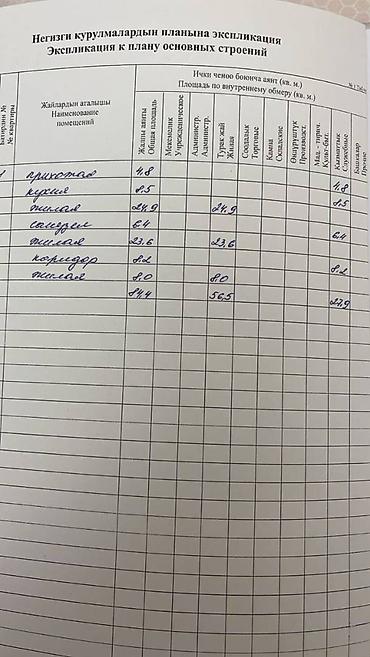 Негизги курулмалардын планына экспликация
Экспликация к плану основных строений
№ квартиры
Жайлардын аталышы
Наименование
помещений
Ички ченоо боюнча аянт (кв. м.)
Площадь по внутреннему обмеру (кв. м.)
Жалпы аянты
Общая площадь
Мекемелик
Учрежденческое
Администр.
Администр.
Турак жай
Жилая
Соодалык
Торговые
Кампа
Складские
Өндүрүштүк
Производст.
Мад. - тирич.
Культ-быт.
Кызматтык
Служебные
Башкалар
Прочие
1 прихожая 4,8 4,8
кухня 8,5 8,5
жилая 24,9 24,9
санузел 6,4 6,4
жилая 23,6 23,6
коридор 8,2 8,2
жилая 8,0 8,0
84,4 56,5 27,9